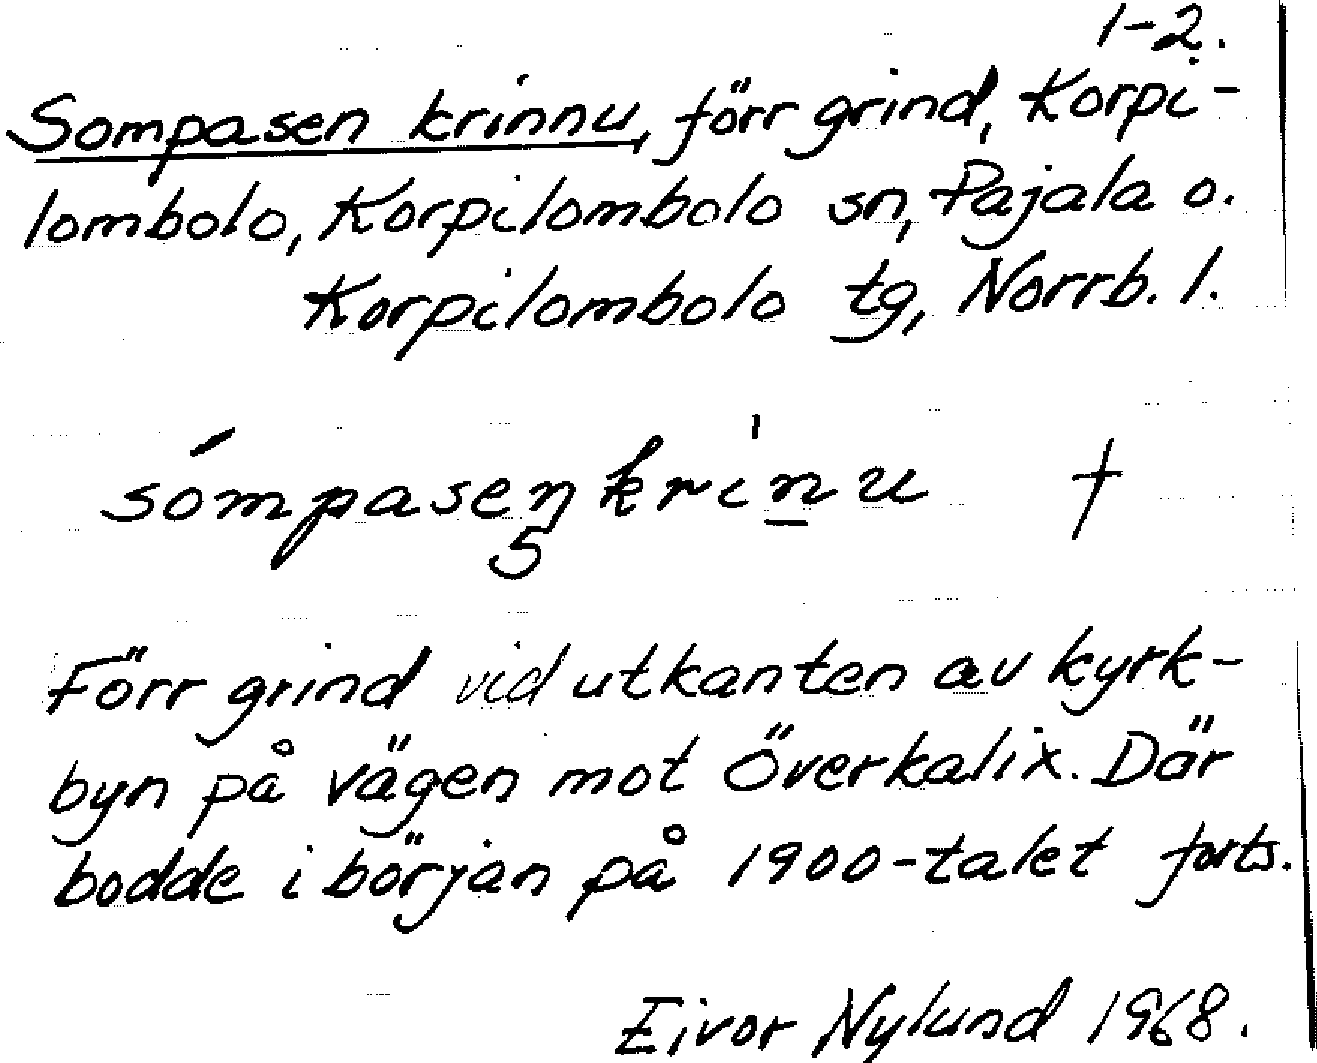 1-2.
Sompasen krinnu, förr grind, Korpi-
lombolo, Korpilombolo sn, Pajala o.
Korpilombolo tg, Norrb. l.
sómpasen krìnu †
5
Förr grind vid utkanten av kyrk-
byn på vägen mot Överkalix. Där
bodde i början på 1900-talet forts.
Eivor Nylund 1968.